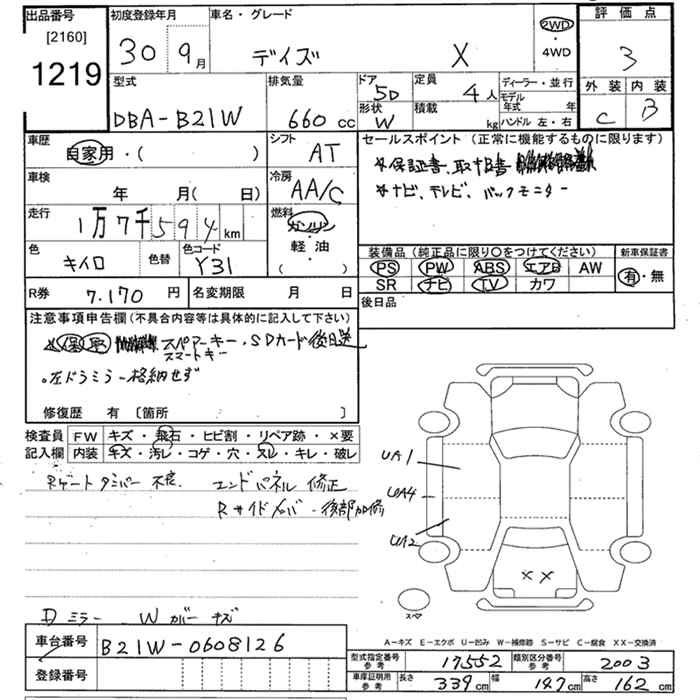 出品番号
[2160]
1219
初度登録年月
30 9月
車名・グレード
デイズ X
2WD
・
4WD
評価点
3
外装 内装
C B
型式
DBA-B21W
排気量
660 cc
ドア
5D
形状
W
定員
4人
積載
kg
ディーラー・並行
モデル年式 年
ハンドル 左・右
車歴
自家用・( )
シフト
AT
車検
年 月( 日)
冷房
AA/C
走行
1万7千594km
燃料
ガソリン
・
軽・油
( )
色
キイロ
色替
色コード
Y31
R券
7.170円
名変期限 月 日
セールスポイント(正常に機能するものに限ります)
保証書、取
ナビ、テレビ、バックモニター
装備品(純正品に限り○をつけてください)
PS PW ABS エアB AW
SR ナビ TV カワ
新車保証書
有・無
後日品
注意事項申告欄(不具合内容等は具体的に記入して下さい)
保 取 スペアーキー・SDカード後日送
スマートキー
左ドラミラー格納せず
修復歴 有〔箇所 〕
検査員
記入欄
FW キズ・飛石・ヒビ割・リペア跡・×要
内装 キズ・汚レ・コゲ・穴・スレ・キレ・破レ
Rゲートダンパー不良 エンドパネル 修正
Rサイドメンバー後部加修
Dミラー Wカバーキズ
UA1
UA4
UA2
××
スペア
A-キズ E-エクボ U-凹み W-補修跡 S-サビ C-腐食 XX-交換済
車台番号
B21W-0608126
登録番号
型式指定番号
参考
17552
類別区分番号
参考
2003
車庫証明用
参考
長さ 339cm 幅 147cm 高さ 162cm